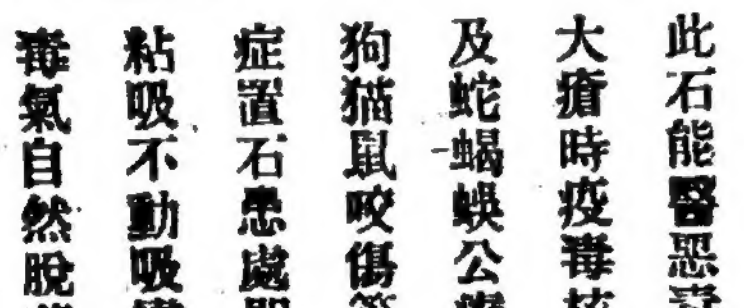 此石能醫惡
大瘡時疫毒
及蛇蝎蜈公
狗猫鼠咬傷
症置石患處
粘吸不動吸
毒氣自然脫